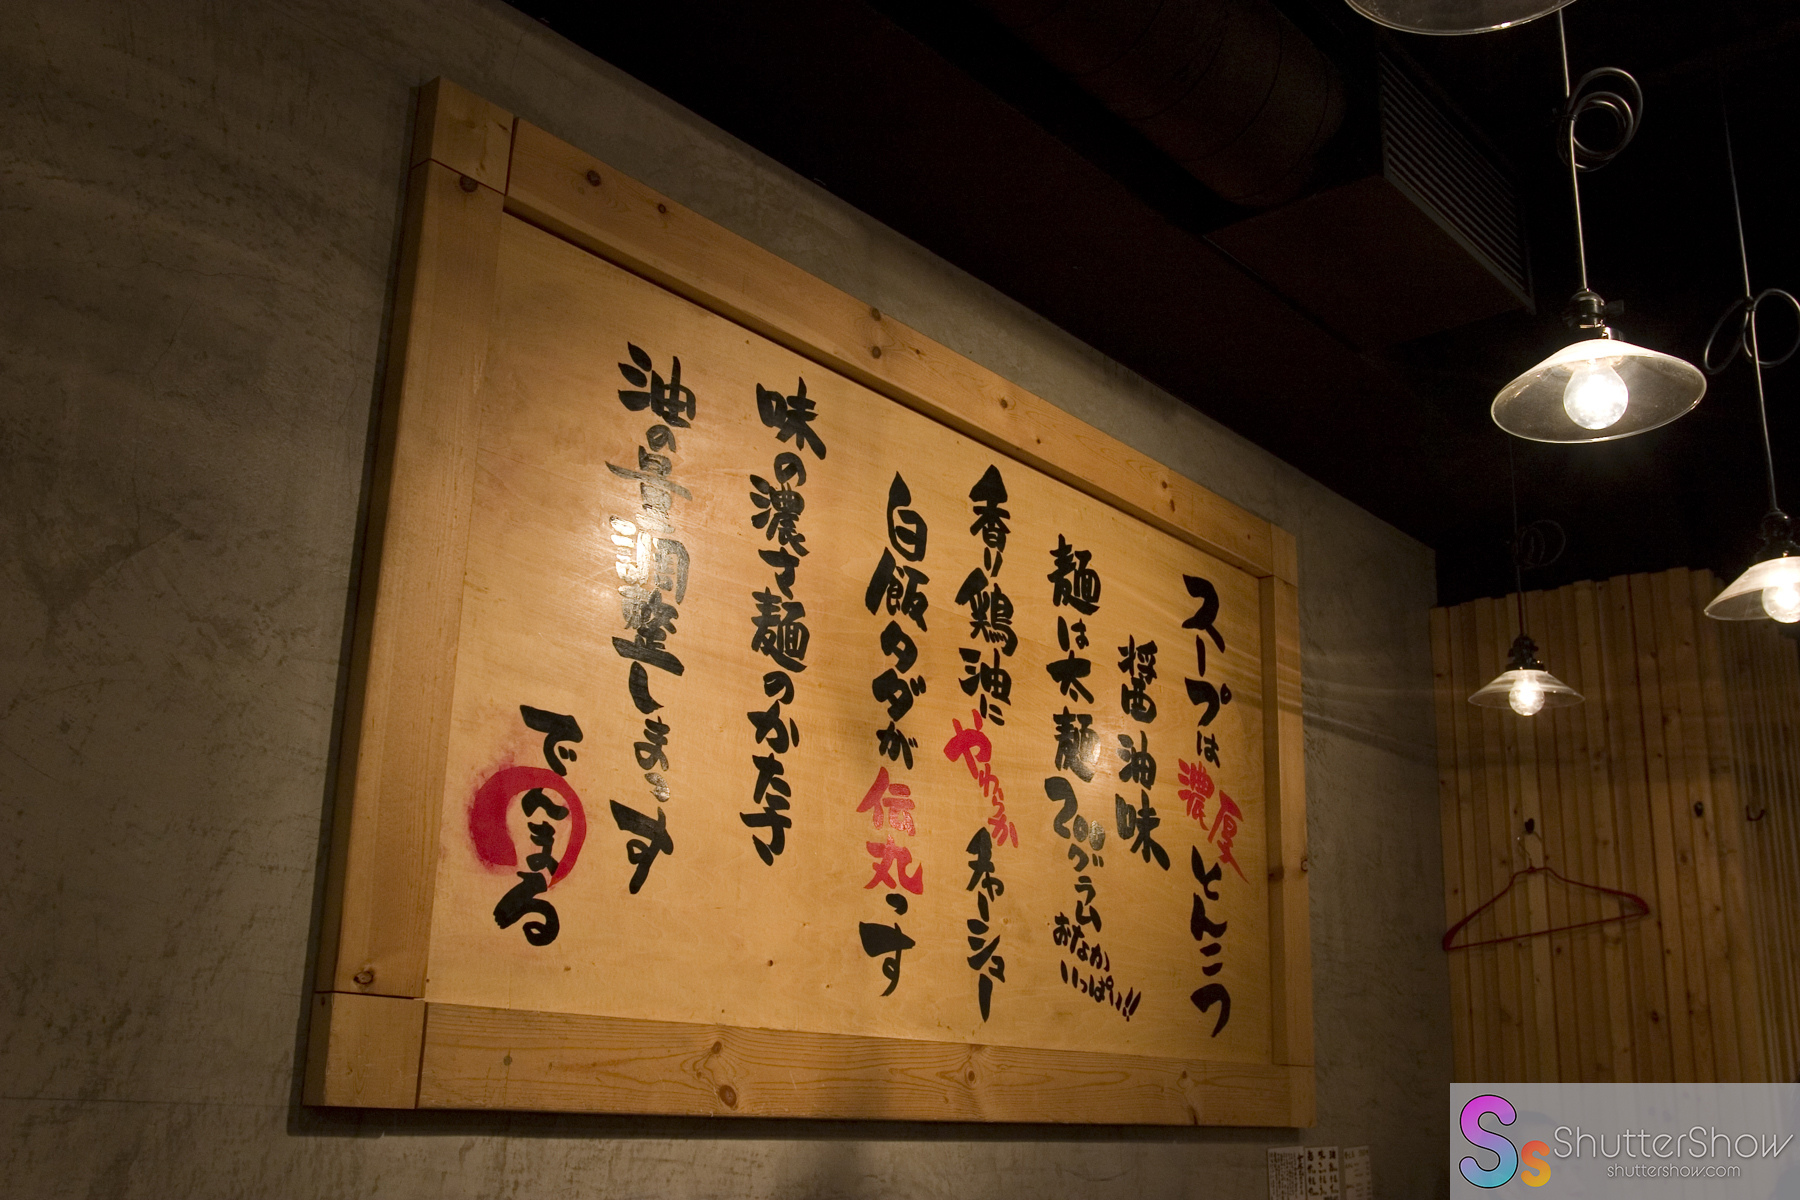 スープは濃厚とんこつ
醤油味
麺は太麺200グラム
おなか
いっぱい!!
香り鶏油にやわらかチャーシュー
白飯タダが伝丸っす
味の濃さ麺のかたさ
油の量調整しまっす
でんまる
Ss ShutterShow
shuttershow.com